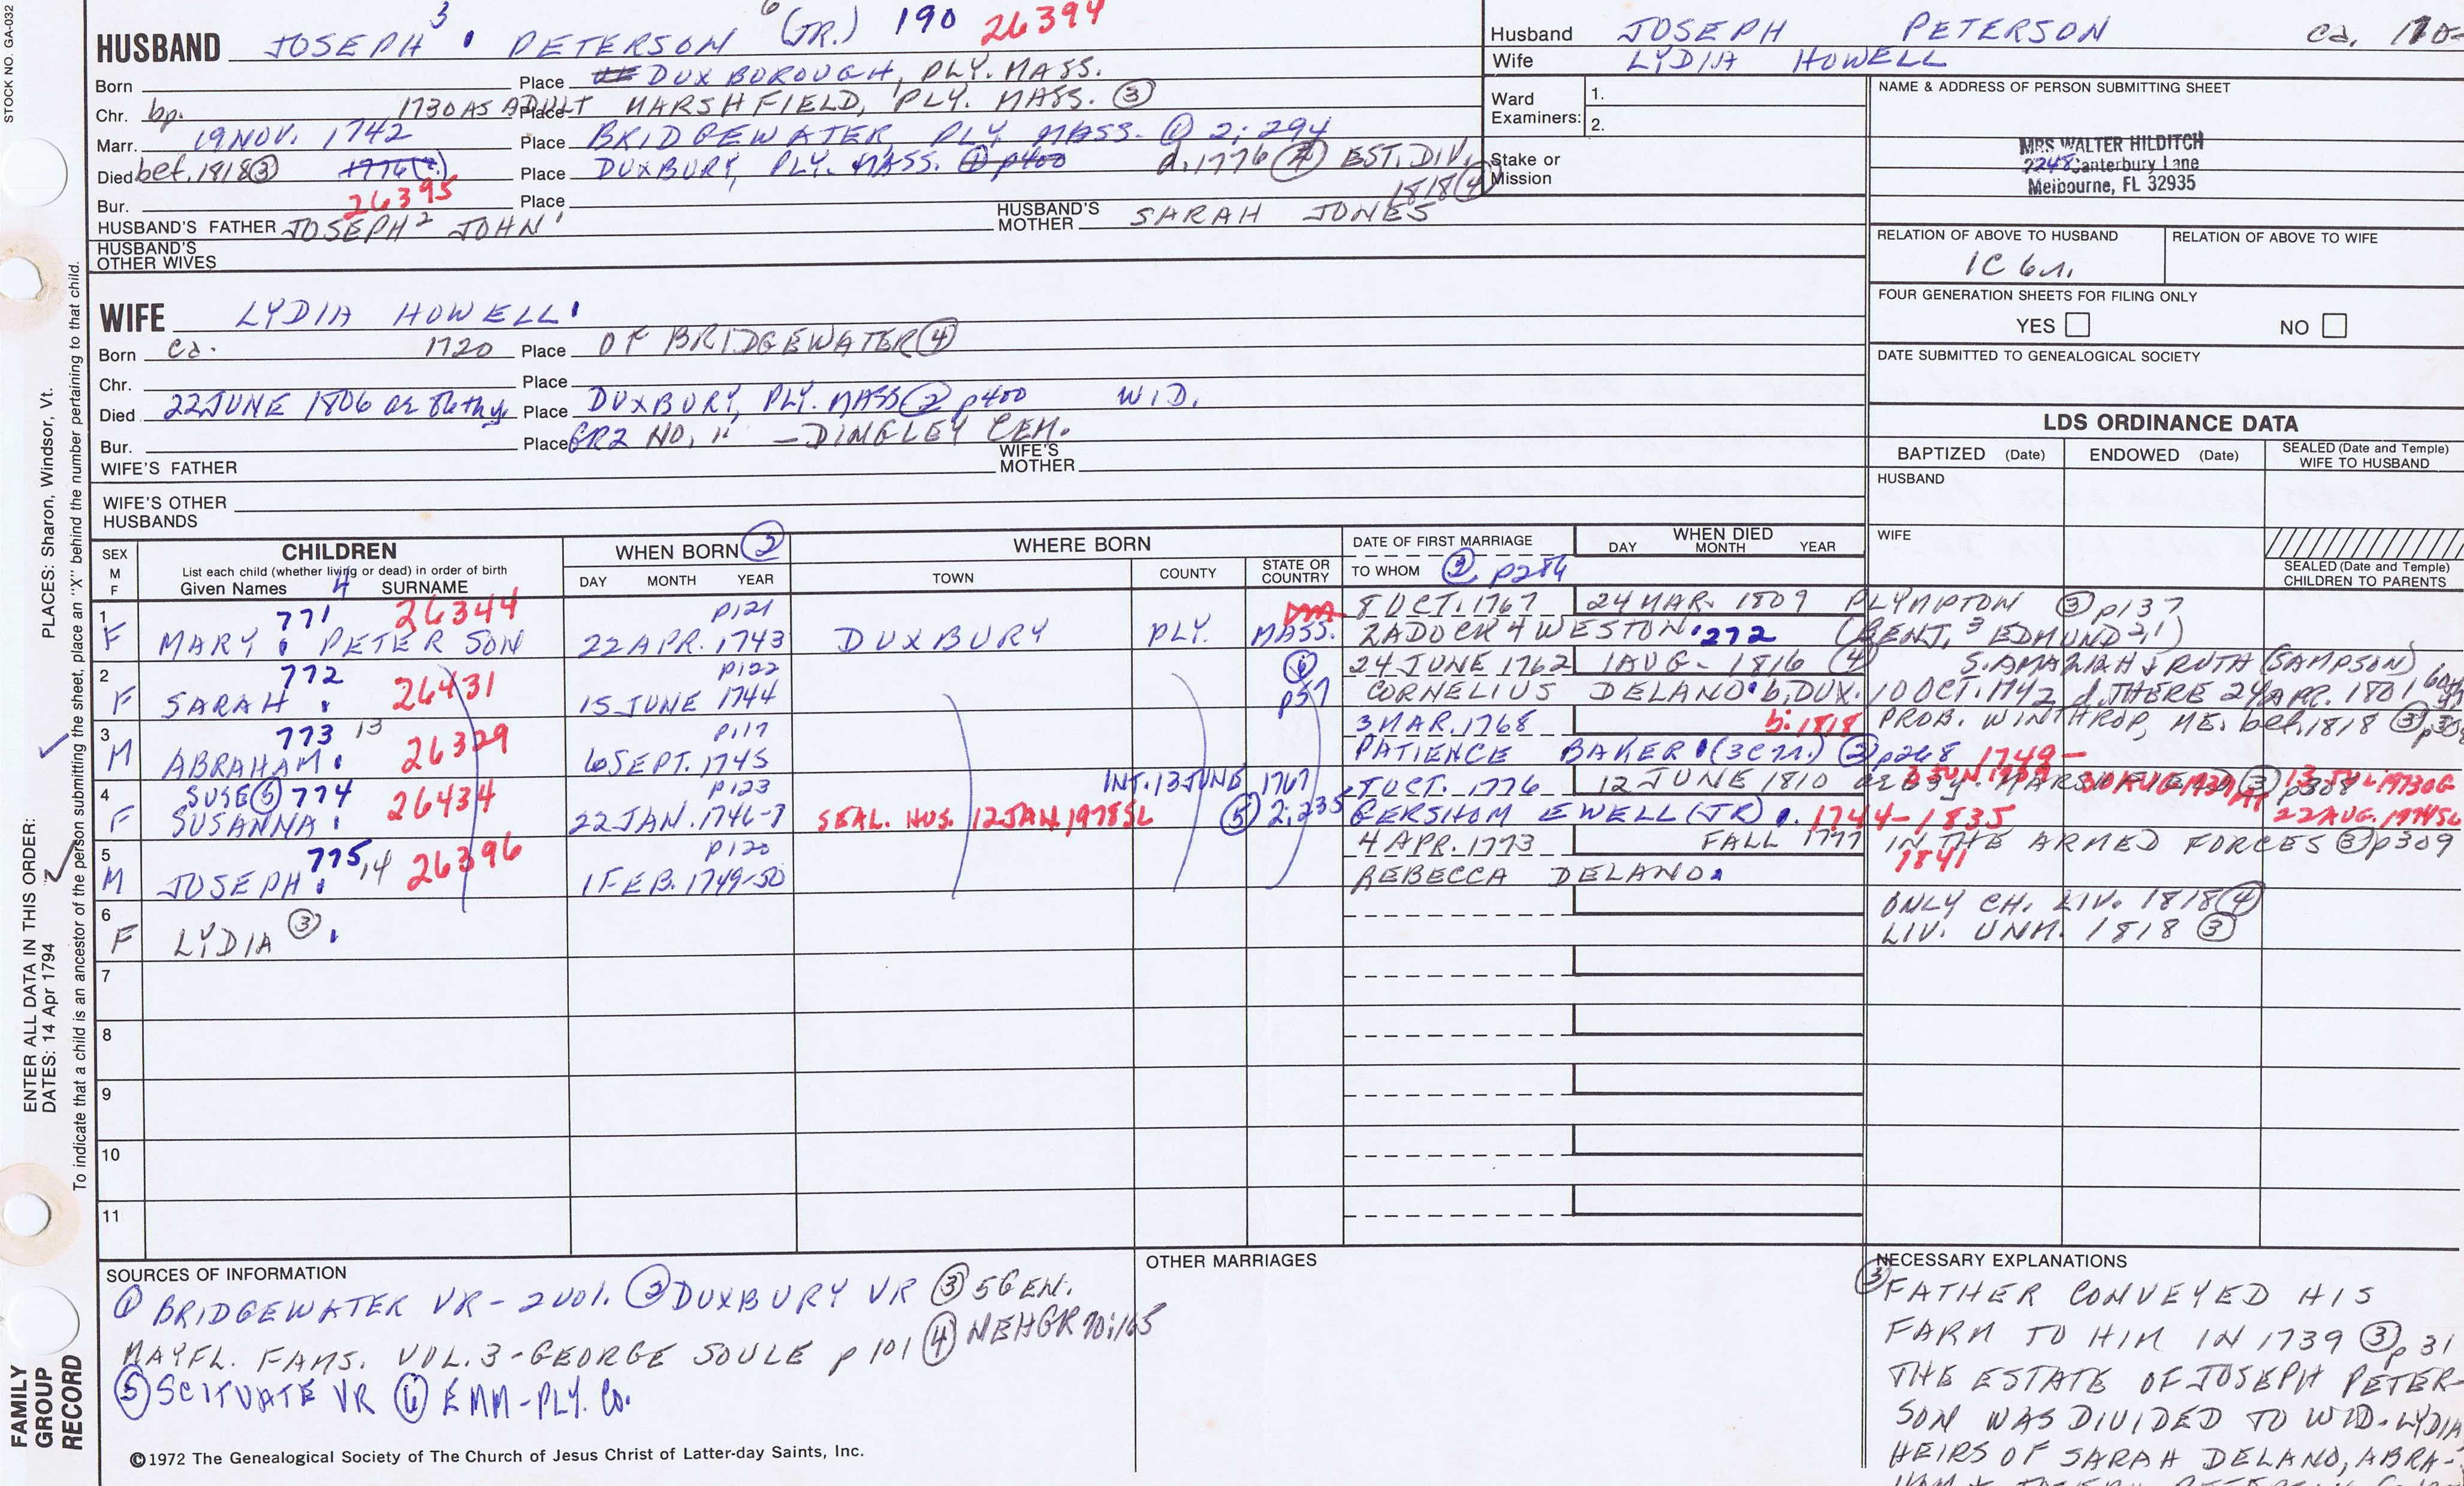 STOCK NO. GA-032
HUSBAND JOSEPH 3 PETERSON (JR.) 6 190 26394
Born Place DUXBOROUGH, PLY. MASS.
Chr. bp. 1730 AS ADULT Place MARSHFIELD, PLY. MASS. ③
Marr. 19 NOV. 1742 Place BRIDGEWATER, PLY. MASS. ① 2; 294
Died bef. 1818 ③ 1776 (?) Place DUXBURY, PLY. MASS. ② p400 d. 1776 ④ EST. DIV. 1818 ④
Bur. 26395 Place
HUSBAND'S FATHER JOSEPH 2 JOHN 1 HUSBAND'S MOTHER SARAH JONES
HUSBAND'S OTHER WIVES
WIFE LYDIA HOWELL
Born ca. 1720 Place OF BRIDGEWATER ④
Chr. Place
Died 22 JUNE 1806 ae 86thy. Place DUXBURY, PLY. MASS ② p400 WID.
Bur. Place GR2 NO. 11 - DINGLEY CEM.
WIFE'S FATHER WIFE'S MOTHER
WIFE'S OTHER HUSBANDS
Husband JOSEPH PETERSON ca.
Wife LYDIA HOWELL
Ward Examiners: 1.
2.
Stake or Mission
NAME & ADDRESS OF PERSON SUBMITTING SHEET
MRS WALTER HILDITCH
2248 Canterbury Lane
Melbourne, FL 32935
RELATION OF ABOVE TO HUSBAND RELATION OF ABOVE TO WIFE
1C 6r.
FOUR GENERATION SHEETS FOR FILING ONLY
YES NO
DATE SUBMITTED TO GENEALOGICAL SOCIETY
LDS ORDINANCE DATA
BAPTIZED (Date) ENDOWED (Date) SEALED (Date and Temple) WIFE TO HUSBAND
HUSBAND
WIFE
SEALED (Date and Temple) CHILDREN TO PARENTS
SEX M F
CHILDREN
List each child (whether living or dead) in order of birth
Given Names 4 SURNAME
WHEN BORN ②
DAY MONTH YEAR
WHERE BORN
TOWN COUNTY STATE OR COUNTRY
DATE OF FIRST MARRIAGE
TO WHOM ② p284
WHEN DIED
DAY MONTH YEAR
1 771 26344 p121 8 OCT. 1767 24 MAR. 1809 PLYMPTON ③ p137
F MARY PETERSON 22 APR. 1743 DUXBURY PLY. MASS. ZADOCK 4 WESTON 272 (BENJ. 3 EDMUND 2,1)
2 772 26431 p122 ⑥ 24 JUNE 1762 1 AUG. 1816 ④ S. AMAZIAH & RUTH (SAMPSON)
F SARAH 15 JUNE 1744 p57 CORNELIUS DELANO b. DUX. 10 OCT. 1742 d. THERE 24 APR. 1801
3 773 13 26329 p117 3 MAR. 1768 b: 1818 PROB. WINTHROP, ME. bef. 1818 ③
M ABRAHAM 6 SEPT. 1745 PATIENCE BAKER (3C r.) ② p268 1749-
4 SUSE ⑤ 774 26434 p123 INT. 13 JUNE 1767 OCT. 1776 12 JUNE 1810 MARSHFIELD ③ p308
F SUSANNA 22 JAN. 1746-7 SEAL. HUS. 12 JAN. 1978SL ⑤ 2; 235 GERSHOM EWELL (JR) 1744-1835 22 AUG. 1974SL
5 775 14 26396 p120 4 APR. 1773 FALL 1777 IN THE ARMED FORCES ③ p309
M JOSEPH 1 FEB. 1749-50 REBECCA DELANO 1841
6 ONLY CH. LIV. 1818 ④
F LYDIA ③ LIV. UNM. 1818 ③
7
8
9
10
11
SOURCES OF INFORMATION
① BRIDGEWATER VR - 2 vol. ② DUXBURY VR ③ 5 GEN.
MAYFL. FAMS. VOL. 3 - GEORGE SOULE p 101 ④ NEHGR 70:165
⑤ SCITUATE VR ⑥ EMM - PLY. Co.
OTHER MARRIAGES
NECESSARY EXPLANATIONS
③ FATHER CONVEYED HIS
FARM TO HIM IN 1739 ③ p 31
THE ESTATE OF JOSEPH PETER-
SON WAS DIVIDED TO WID. LYDIA
HEIRS OF SARAH DELANO, ABRA-
©1972 The Genealogical Society of The Church of Jesus Christ of Latter-day Saints, Inc.
FAMILY GROUP RECORD
ENTER ALL DATA IN THIS ORDER:
DATES: 14 Apr 1794 PLACES: Sharon, Windsor, Vt.
To indicate that a child is an ancestor of the person submitting the sheet, place an "X" behind the number pertaining to that child.